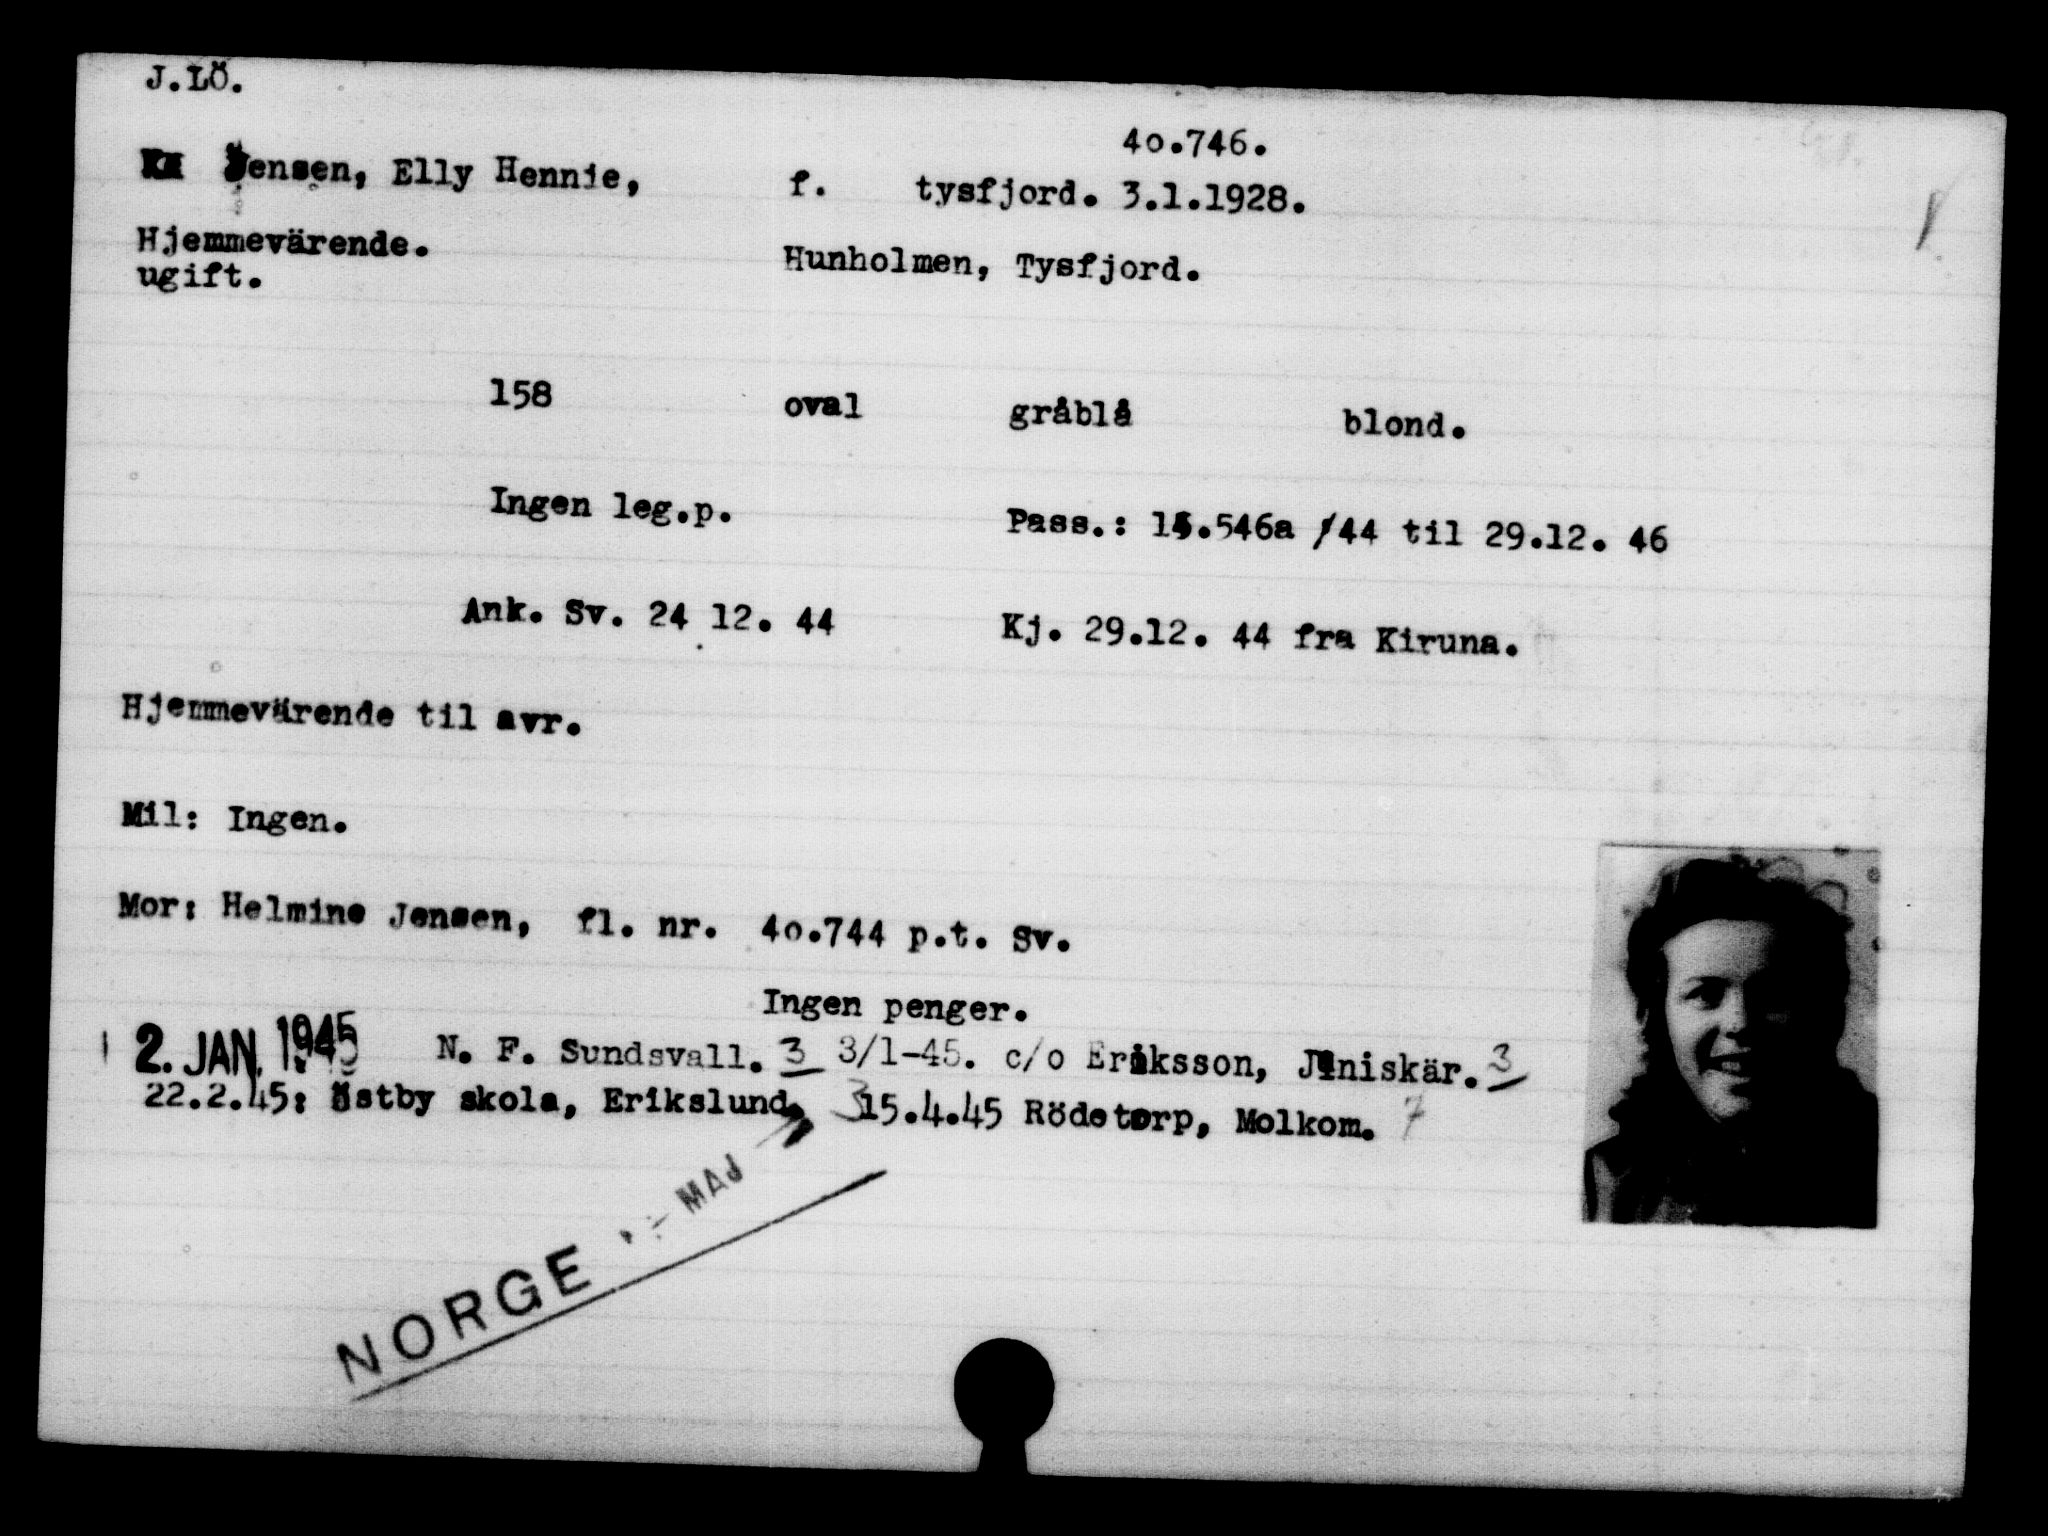 J.LÖ.
40.746.
Jensen, Elly Hennie, f. tysfjord. 3.1.1928.
Hjemmevärende. Hunholmen, Tysfjord.
ugift.
158 oval gråblå blond.
Ingen leg.p. Pass.: 15.546a /44 til 29.12. 46
Ank. Sv. 24 12. 44 Kj. 29.12. 44 fra Kiruna.
Hjemmevärende til avr.
Mil: Ingen.
Mor: Helmine Jensen, fl. nr. 40.744 p.t. Sv.
Ingen penger.
2. JAN. 1945 N. F. Sundsvall. 3 3/1-45. c/o Eriksson, Juniskär. 3
22.2.45: Östby skola, Erikslund. 3 15.4.45 Rödetorp, Molkom. 7
NORGE MAJ